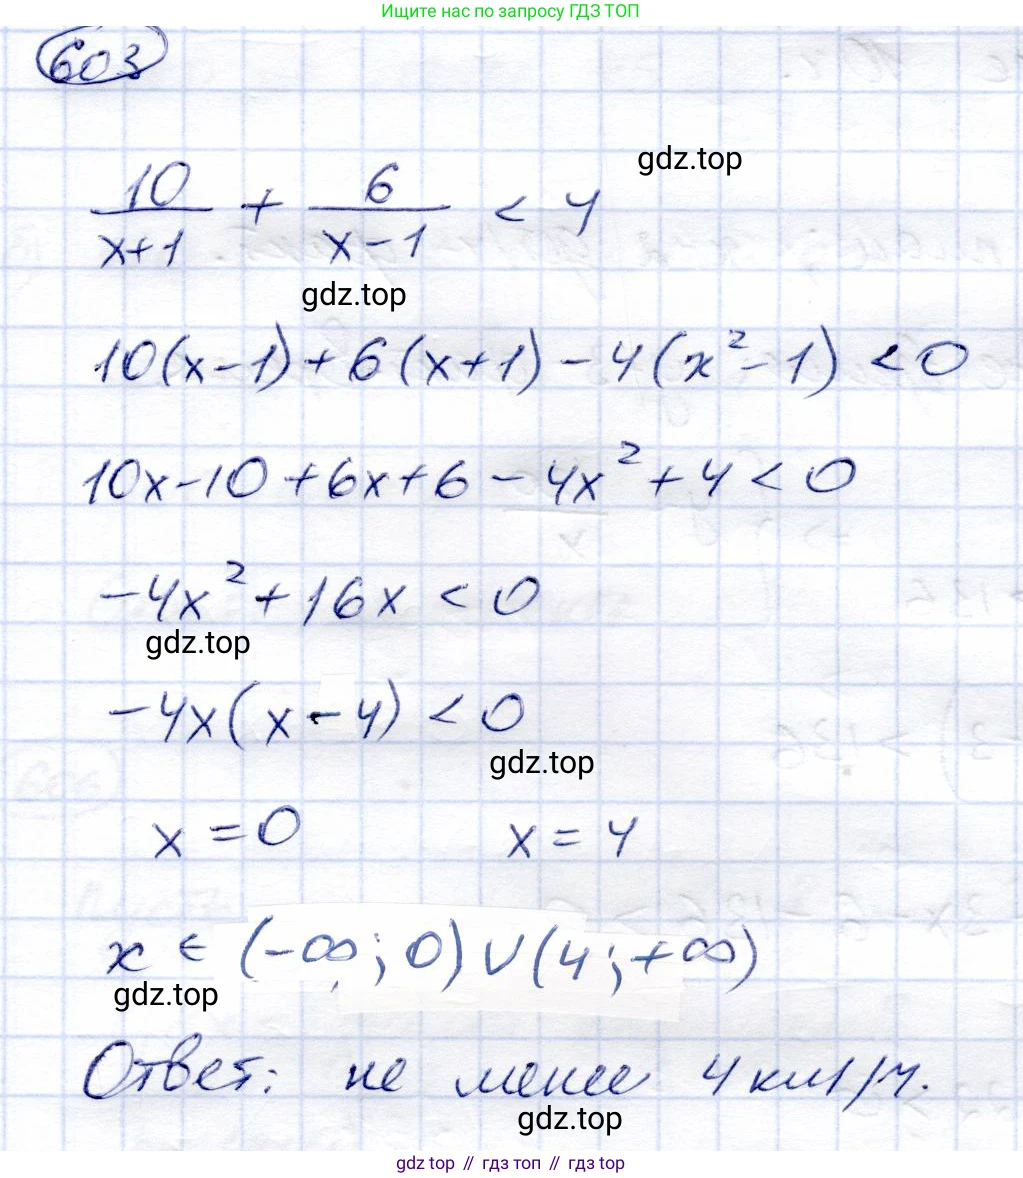 Ищите нас по запросу ГДЗ ТОП
603
gdz.top
10/(x+1) + 6/(x-1) < 4
gdz.top
10(x-1)+6(x+1)-4(x²-1)<0
10x-10+6x+6-4x²+4<0
-4x²+16x<0
gdz.top
-4x(x-4)<0
gdz.top
x=0 x=4
x∈(-∞;0)∪(4;+∞)
gdz.top
Ответ: не менее 4 км/ч.
gdz.top
gdz top // гдз топ // gdz top